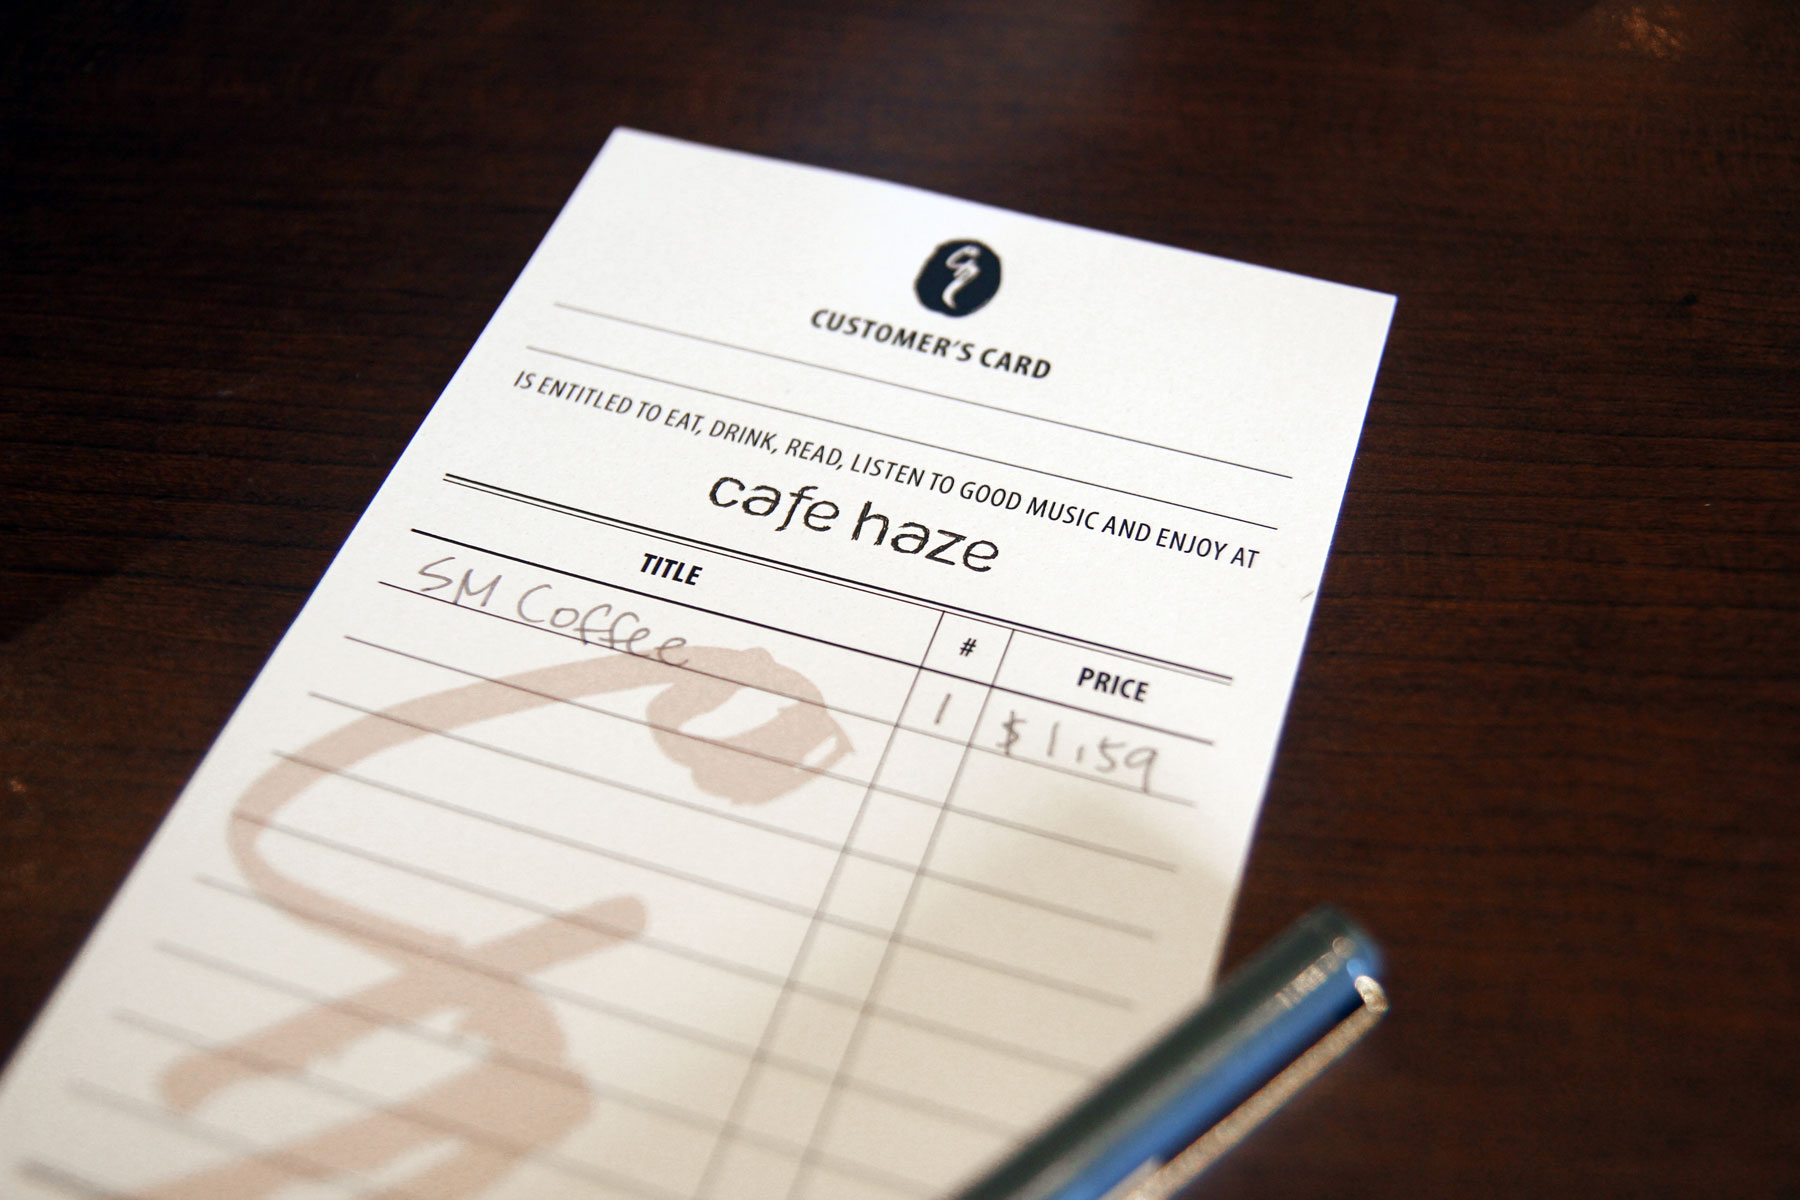 CUSTOMER'S CARD
IS ENTITLED TO EAT, DRINK, READ, LISTEN TO GOOD MUSIC AND ENJOY AT
cafe haze
TITLE # PRICE
SM Coffee 1 $1.59